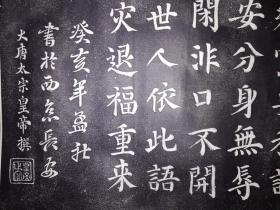 安分身無辱
閑非口不開
世人依此語
灾退福重来
癸亥年孟秋
書於西京長安
大唐太宗皇帝撰